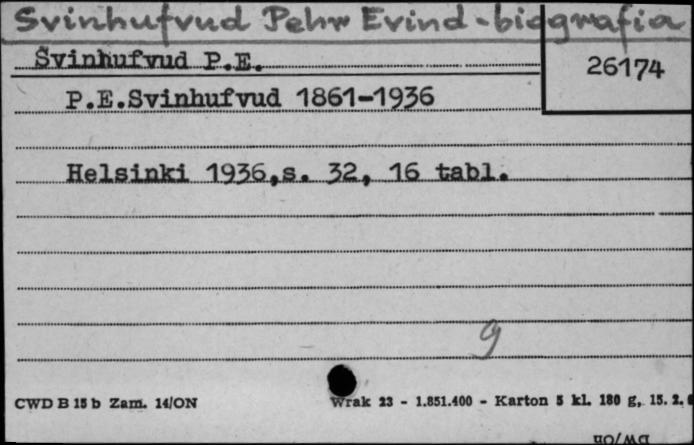 Svinhufvud Pehr Evind - biografia
Svinhufvud P.E.
26174
P.E.Svinhufvud 1861-1936
Helsinki 1936,s. 32, 16 tabl.
g
CWD B 15 b Zam. 14/ON
Wrak 23 - 1.851.400 - Karton 5 kl. 180 g, 15. 2.